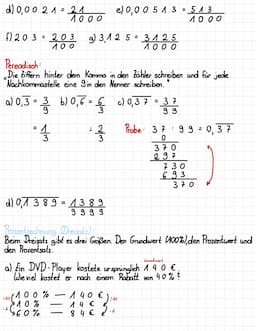 d) 0,0021 = 21/1000 e) 0,00513 = 513/1000
f) 203 = 203/100 g) 3,125 = 3125/1000
Pereodisch:
"Die Ziffern hinter dem Komma in den Zähler schreiben und für jede
Nachkommastelle eine 9 in den Nenner schreiben."
a) 0,3̅ = 3/9 b) 0,6̅ = 6/3 c) 0,3̅7̅ = 37/99
= 1/3 = 2/3 Probe: 37 : 99 = 0,3̅7̅
0
370
297
730
693
370
d) 0,1̅3̅8̅9̅ = 1389/9999
Prozentrechnung (Dreisatz)
Beim Dreisatz gibt es drei Größen. Den Grundwert (100%), den Prozentwert und
den Prozentsatz.
a) Ein DVD-Player kostete ursprünglich 140 €.
Wie viel kostet er nach einem Rabatt von 40%?
100% — 140 €
10% — 14 €
60% — 84 €